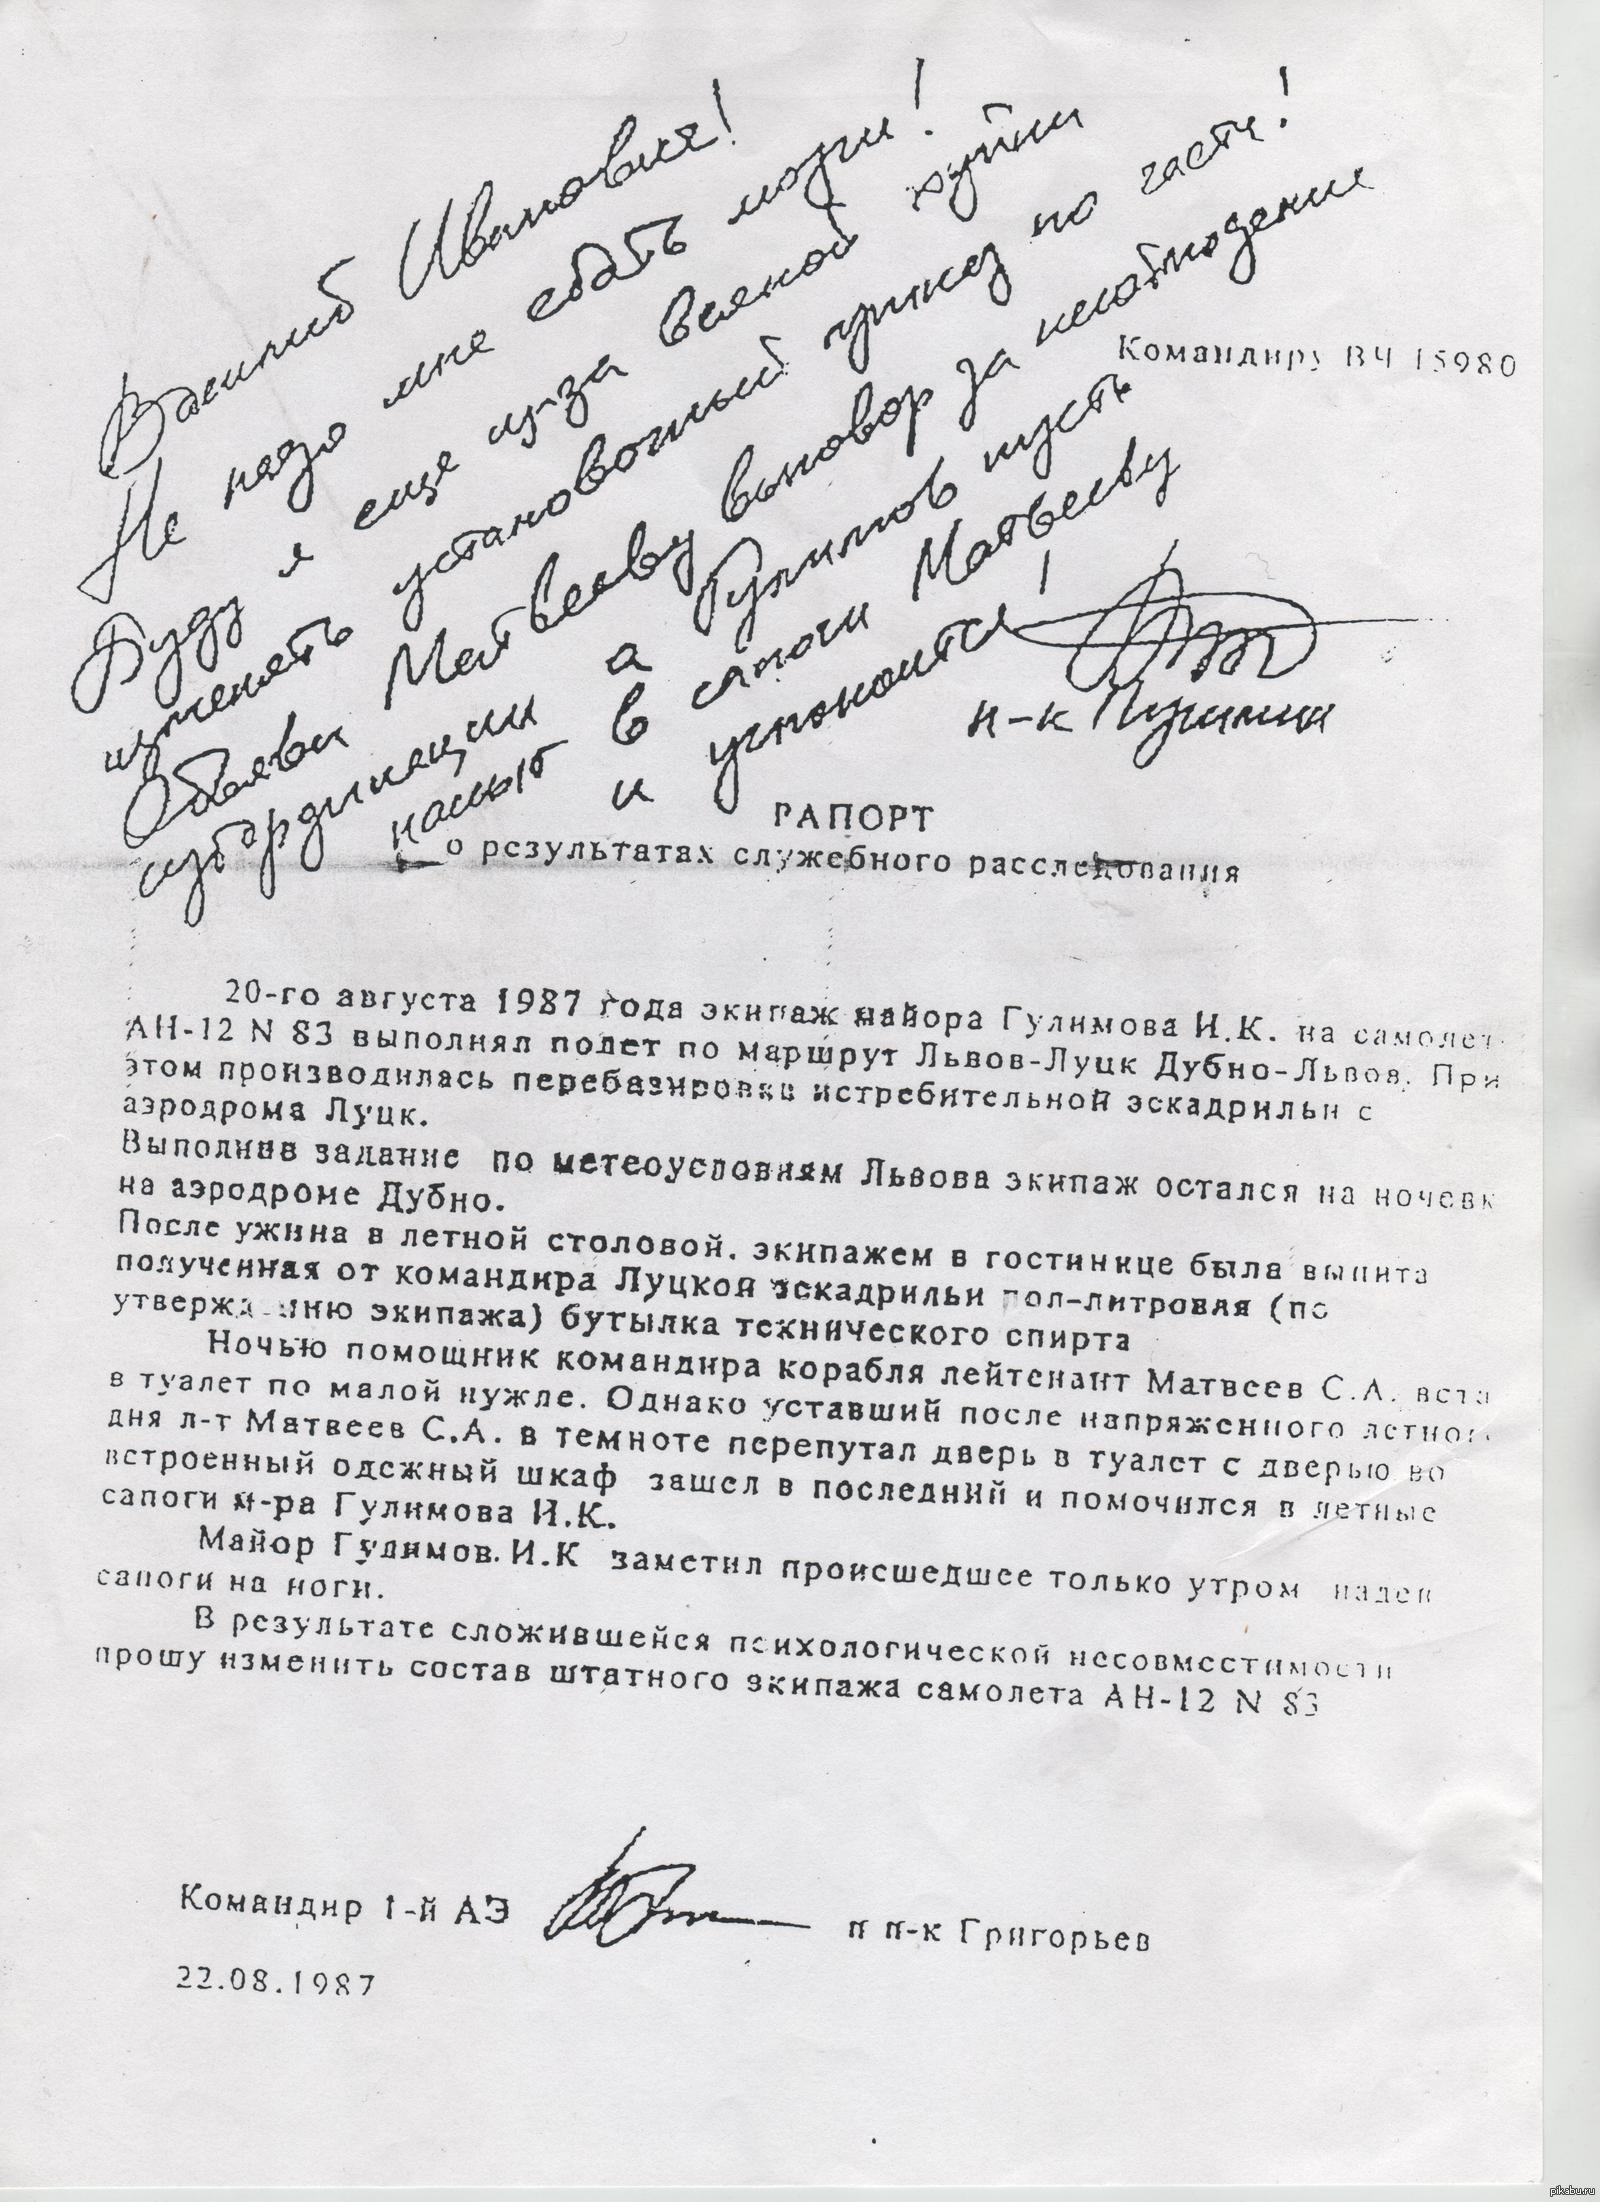 Василий Иванович!
Не надо мне ебать мозги!
Буду я еще из-за всякой хуйни
изменять установочный приказ по части!
Объяви Матвееву выговор за несоблюдение
субординации а Гулимов пусть
нассыт в сапоги Матвееву
и успокоится!
п-к
Командиру ВЧ 15980
РАПОРТ
о результатах служебного расследования
20-го августа 1987 года экипаж майора Гулимова И.К. на самолет
АН-12 N 83 выполнял полет по маршрут Львов-Луцк Дубно-Львов. При
этом производилась перебазировка истребительной эскадрильи с
аэродрома Луцк.
Выполнив задание по метеоусловиям Львова экипаж остался на ночевк
на аэродроме Дубно.
После ужина в летной столовой. экипажем в гостинице была выпита
полученная от командира Луцкой эскадрильи пол-литровая (по
утверждению экипажа) бутылка технического спирта
Ночью помощник командира корабля лейтенант Матвеев С.А. вста
в туалет по малой нужде. Однако уставший после напряженного летного
дня л-т Матвеев С.А. в темноте перепутал дверь в туалет с дверью во
встроенный одежный шкаф зашел в последний и помочился в летные
сапоги м-ра Гулимова И.К.
Майор Гулимов.И.К заметил происшедшее только утром надев
сапоги на ноги.
В результате сложившейся психологической несовместимости
прошу изменить состав штатного экипажа самолета АН-12 N 83
Командир 1-й АЭ п п-к Григорьев
22.08.1987
pikabu.ru